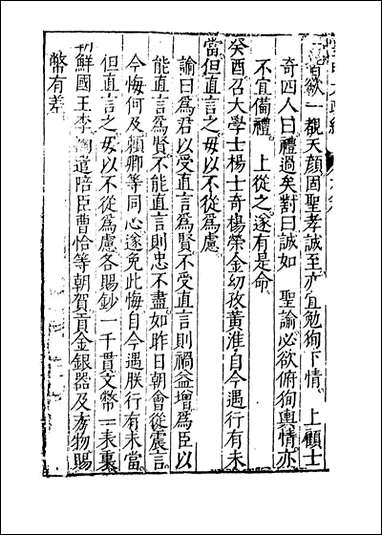 觀天顏固聖孝誠至亦宜勉狥下情　上顧士
奇四人曰禮過矣對曰誠如　聖諭必欲俯狥輿情亦
不宜備禮　上從之遂有是命
癸酉召大學士楊士奇楊榮金幼孜黃淮自今遇行有未
當但直言之毋以不從爲慮
諭曰爲君以受直言爲賢不受直言則禍益增爲臣以
能直言爲賢不能直言則忠不盡如昨日朝會從震言
今悔何及頼卿等同心遂免此悔自今遇朕行有未當
但直言之毋以不從爲慮各賜鈔一千貫文幣一表裏
朝鮮國王李裪遣陪臣曹恰等朝賀貢金銀器及方物賜
幣有差